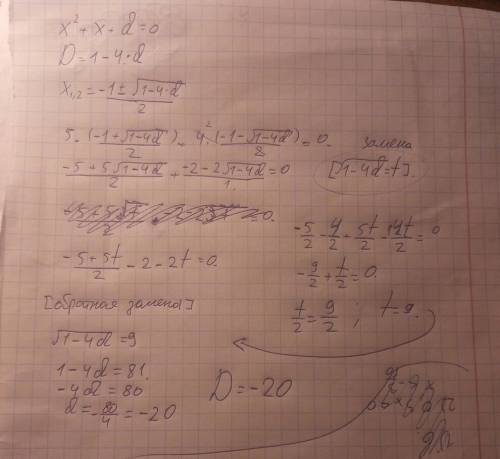 x² + x + d = 0
D = 1 - 4·d
x₁,₂ = (-1 ± √(1-4·d))/2
5·(-1+√(1-4d))/2 + 4²·(-1-√(1-4d))/2 = 0.
замена
(-5+5√(1-4d))/2 + (-2-2√(1-4d))/1 = 0
[√(1-4d) = t].
= 0.
(-5+5t)/2 - 2 - 2t = 0.
-5/2 - 4/2 + 5t/2 - 4t/2 = 0
-9/2 + t/2 = 0.
t/2 = 9/2 ; t = 9.
[обратная замена]
√(1-4d) = 9
1 - 4d = 81.
-4d = 80
d = -80/4 = -20
D = -20